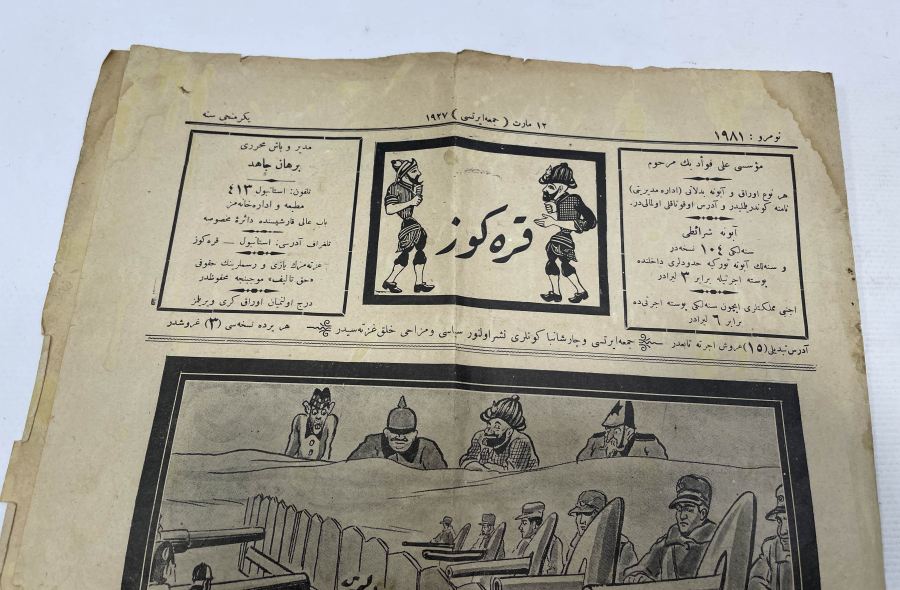 نومرو : ١٩٨١
١٢ مارت ( جمعه‌ايرتسى ) ١٩٢٧
يكرمنجى سنه
مؤسسى على فؤاد بك مرحوم
هر نوع اوراق و آبونه بدلاتى (اداره مديريتى)
نامنه كوندرملیدر و آدرس اوقوناقلى اولمالى‌در.
آبونه شرائطى
سنه‌لكى ١٠٤ نسخه‌در
و سنه‌لك آبونه توركيه حدودلرى داخلنده
پوسته اجرتيله برابر ٣ ليرادر
اجنبى مملكتلرى ايچون سنه‌لكى پوسته اجرتى‌ده
برابر ٦ ليرادر
قره كوز
مدير و باش محررى
برهان جاهد
تلفون: استانبول ٤١٣
مطبعه و اداره‌خانه‌مز
باب عالى قارشيسنده دائرۀ مخصوصه
تلغراف آدرسى: استانبول — قره‌كوز
غزته‌مزك يازى و رسملرينك حقوقى
«حق تأليف» موجبنجه محفوظدر
درج اولنميان اوراق كرى ويريلمز
آدرس تبديلى (١٥) غروش اجرته تابعدر
جمعه‌ايرتسى وچارشانبا كونلرى نشر اولنور سياسى ومزاحى خلق غزته‌سيدر
هر يرده نسخه‌سى (٣) غروشدر